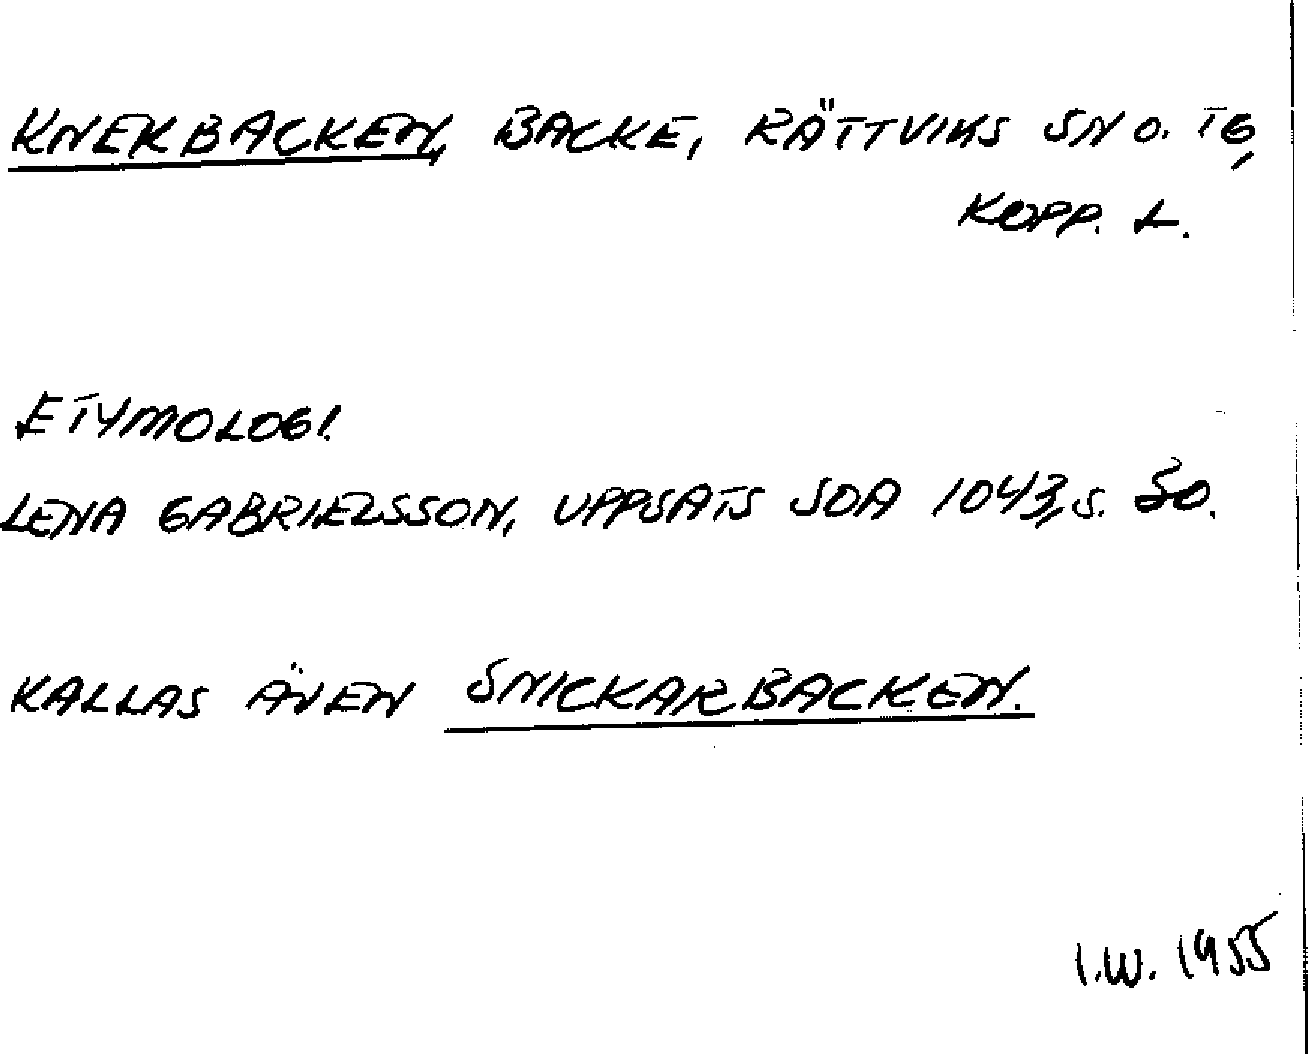 KNEKBACKEN, BACKE, RÄTTVIKS SN O. TG,
KOPP. L.
ETYMOLOGI.
LENA GABRIELSSON, UPPSATS SOA 1043, S. 50.
KALLAS ÄVEN SNICKARBACKEN.
I.W. 1955